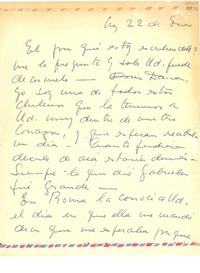 22 de
El por qué estoy escribiéndo
me lo pregunto y solo Ud. puede
Yo soy una de todos estos
Chilenos que la tenemos a
Ud. muy dentro de nuestro
Corazón, y que esperan
un día - Cuanto pudiera
decirle de acá estaría demás
Siempre lo que dió Gabriela
fué Grande -
En Roma la conocí a Ud.
el día en que ella me mandó
decir que me esperaba porque